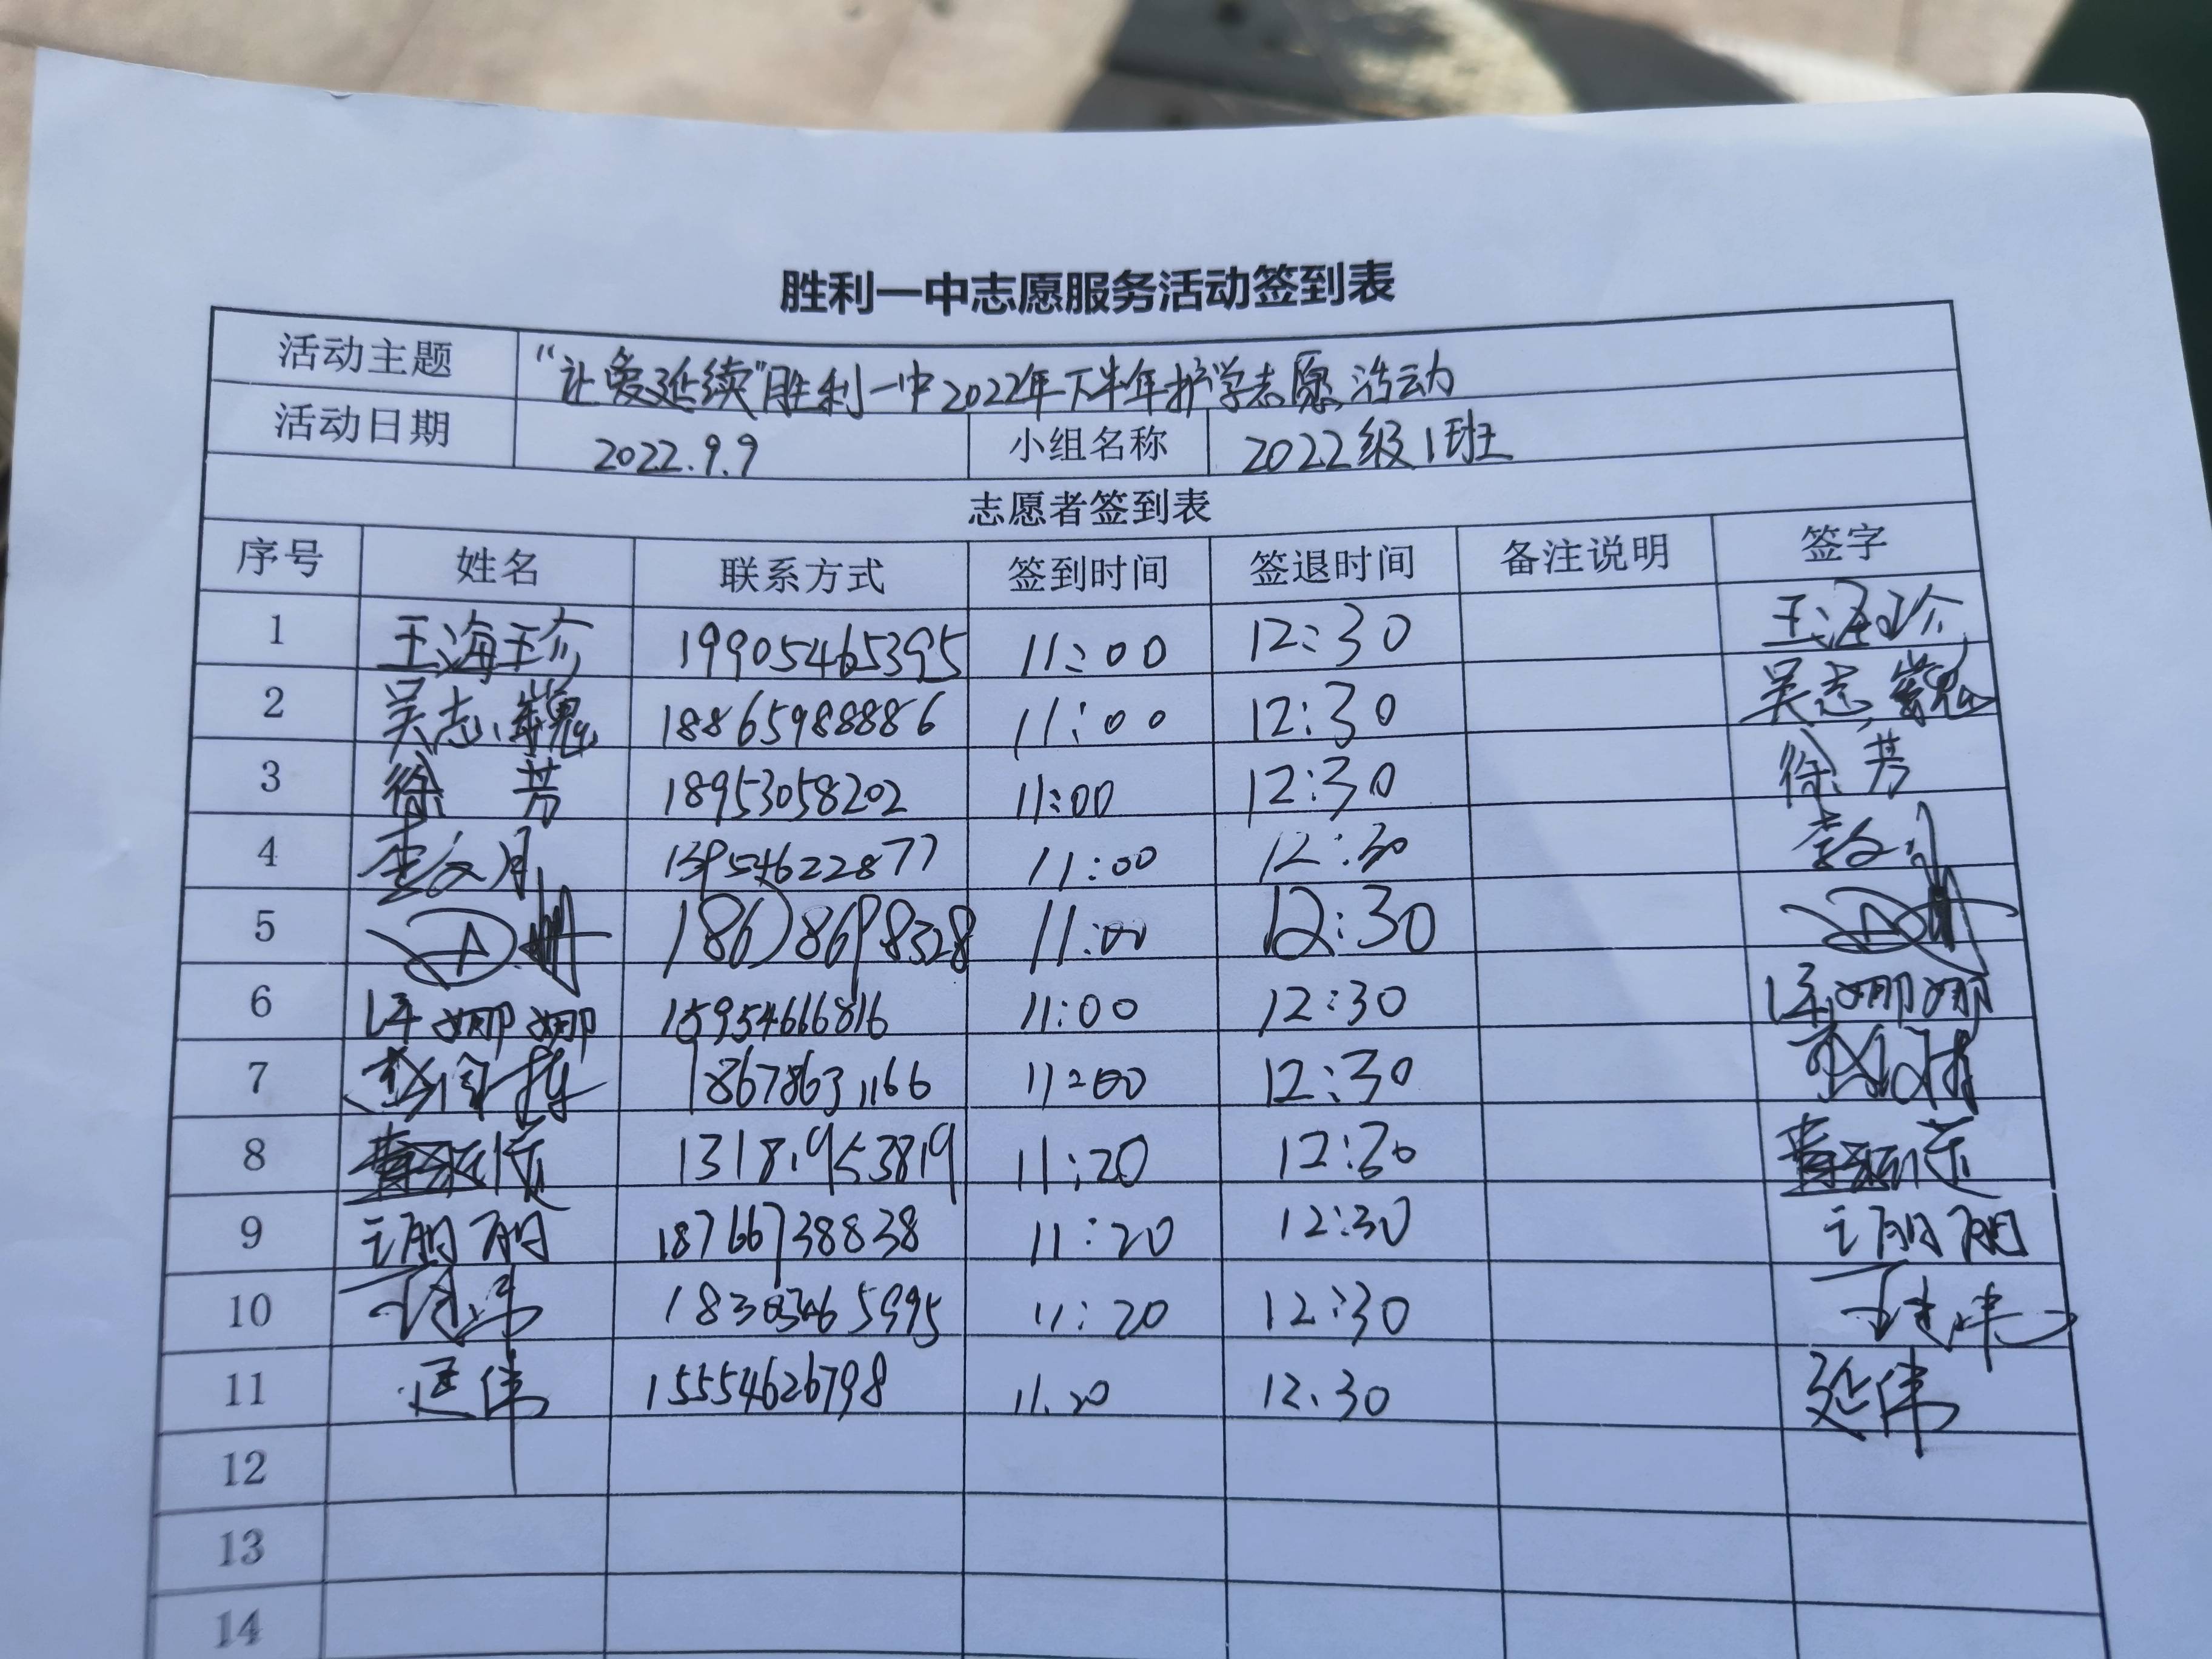 胜利一中志愿服务活动签到表
活动主题 “让爱延续”胜利一中2022年下半年护学志愿活动
活动日期 2022.9.9 小组名称 2022级1班
志愿者签到表
序号 姓名 联系方式 签到时间 签退时间 备注说明 签字
1 王海珍 19905465395 11:00 12:30 王海珍
2 吴志巍 18865988886 11:00 12:30 吴志巍
3 徐芳 18953058202 11:00 12:30 徐芳
4 13954622877 11:00 12:30
5 18678698328 11:00 12:30
6 娜娜 15954666816 11:00 12:30 娜娜
7 18678631166 11:00 12:30
8 13181953819 11:20 12:30
9 18766738838 11:20 12:30
10 11:20 12:30
11 延伟 15554626798 11.20 12.30 延伟
12
13
14